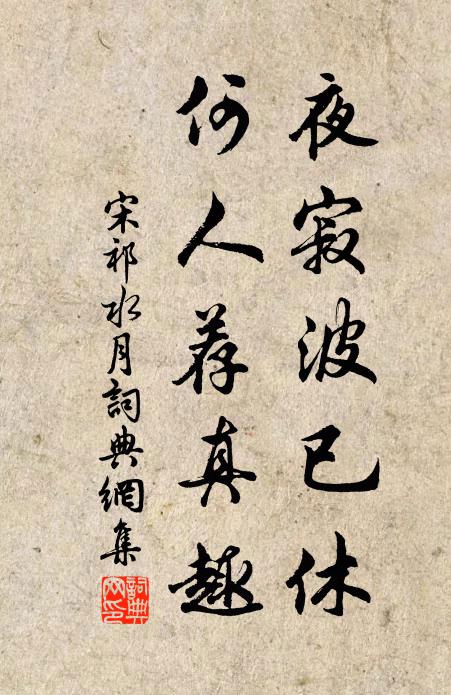 夜寂波已休
何人荐真趣
宋祁水月詞典網集
詞典网印